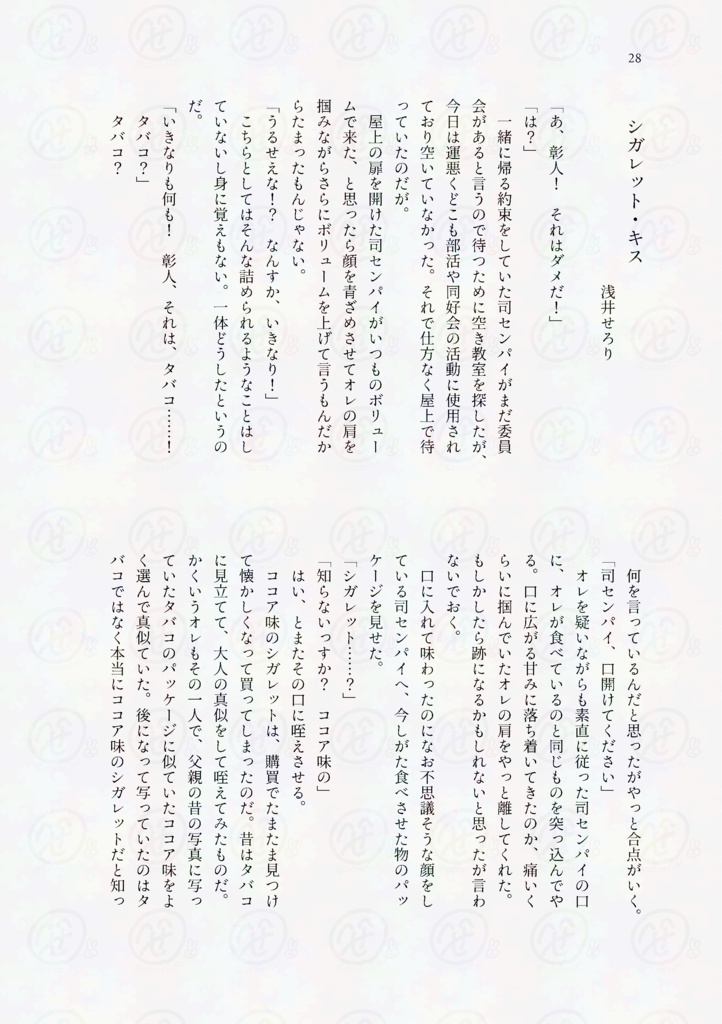 28
シガレット・キス
浅井せろり
「あ、彰人！　それはダメだ！」
「は？」
　一緒に帰る約束をしていた司センパイがまだ委員
会があると言うので待つために空き教室を探したが、
今日は運悪くどこも部活や同好会の活動に使用され
ており空いていなかった。それで仕方なく屋上で待
っていたのだが。
　屋上の扉を開けた司センパイがいつものボリュー
ムで来た、と思ったら顔を青ざめさせてオレの肩を
掴みながらさらにボリュームを上げて言うもんだか
らたまったもんじゃない。
「うるせえな！？　なんすか、いきなり！」
　こちらとしてはそんな詰められるようなことはし
ていないし身に覚えもない。一体どうしたというの
だ。
「いきなりも何も！　彰人、それは、タバコ……！
　タバコ？」
　タバコ？
　何を言っているんだと思ったがやっと合点がいく。
「司センパイ、口開けてください」
　オレを疑いながらも素直に従った司センパイの口
に、オレが食べているのと同じものを突っ込んでや
る。口に広がる甘みに落ち着いてきたのか、痛いく
らいに掴んでいたオレの肩をやっと離してくれた。
もしかしたら跡になるかもしれないと思ったが言わ
ないでおく。
　口に入れて味わったのになお不思議そうな顔をし
ている司センパイへ、今しがた食べさせた物のパッ
ケージを見せた。
「シガレット……？」
「知らないっすか？　ココア味の」
　はい、とまたその口に咥えさせる。
　ココア味のシガレットは、購買でたまたま見つけ
て懐かしくなって買ってしまったのだ。昔はタバコ
に見立てて、大人の真似をして咥えてみたものだ。
かくいうオレもその一人で、父親の昔の写真に写っ
ていたタバコのパッケージに似ていたココア味をよ
く選んで真似ていた。後になって写っていたのはタ
バコではなく本当にココア味のシガレットだと知っ